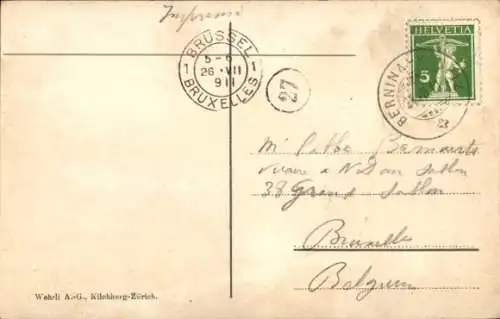 Imprimé
BRÜSSEL
1 5-6 1
26 VII
911
BRUXELLES
27
HELVETIA
5
BERNINA
Mr l'abbé Bernaerts
Vicaire a N D au Sablon
38 Grand Sablon
Bruxelles
Belgium
Wehrli A.-G., Kilchberg-Zürich.